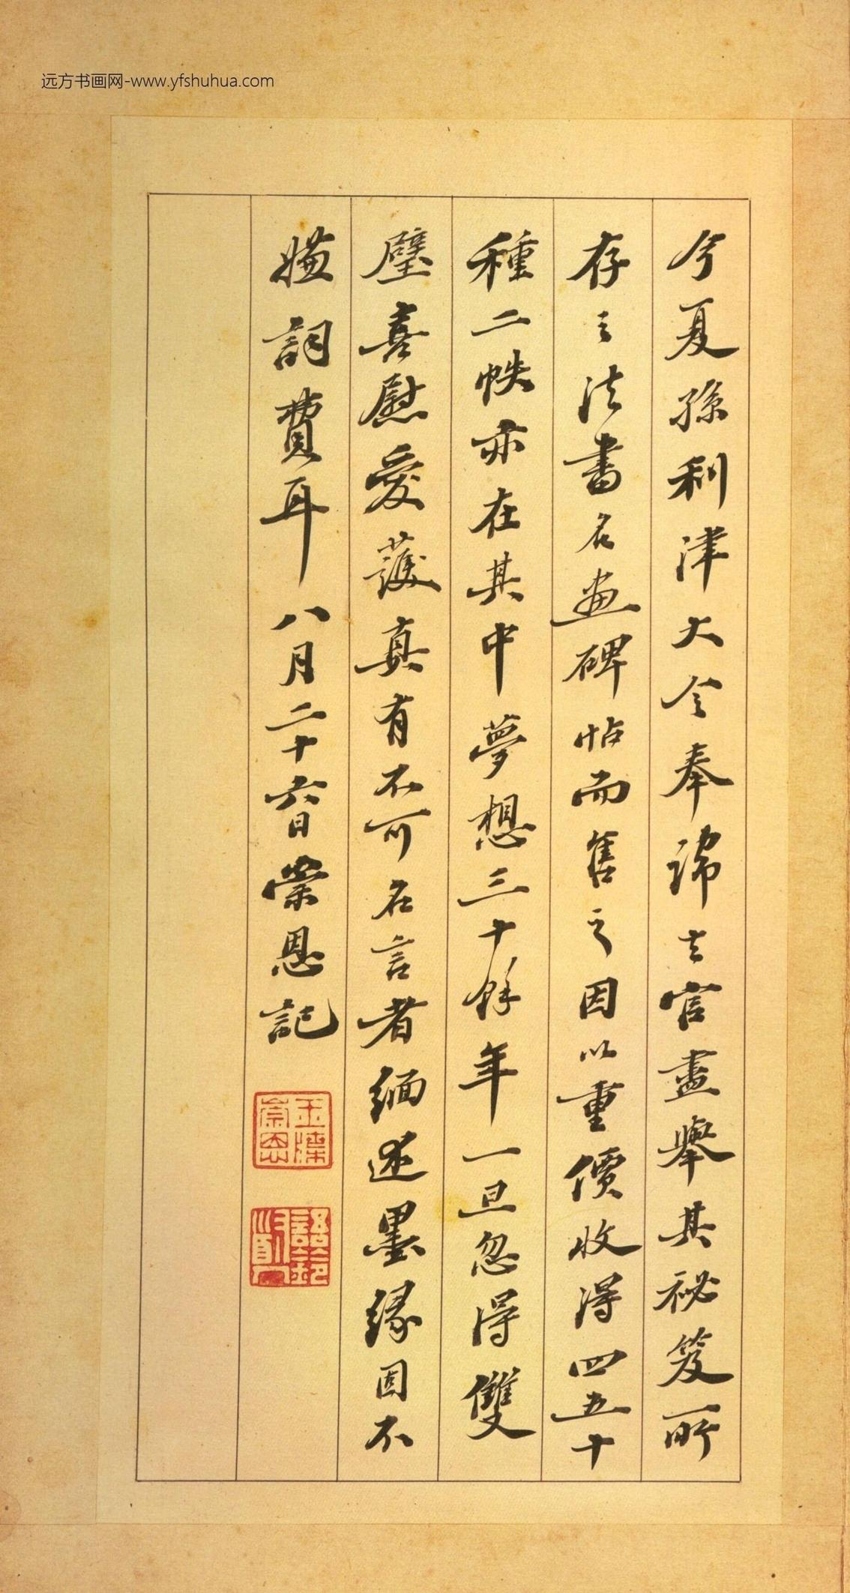 远方书画网-www.yfshuhua.com
今夏孫利津大令奉諱去官盡舉其祕笈所
存之法書名畫碑帖而售之因以重價收得四五十
種二帙亦在其中夢想三十餘年一旦忽得雙
璧喜慰愛護真有不可名言者緬述墨緣固不
嫌詞費耳八月二十六日崇恩記
玉牒崇恩